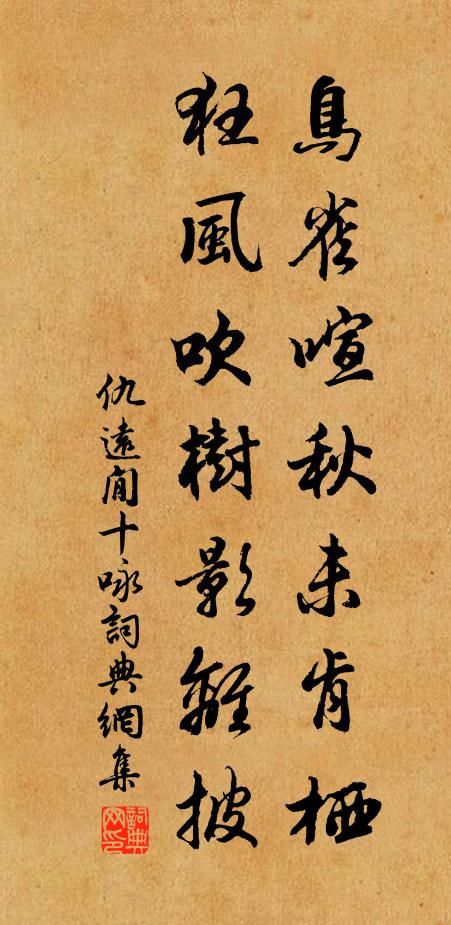 鳥雀喧秋未肯栖
狂風吹樹影離披
仇遠閒十咏詞典網集
詞典网印